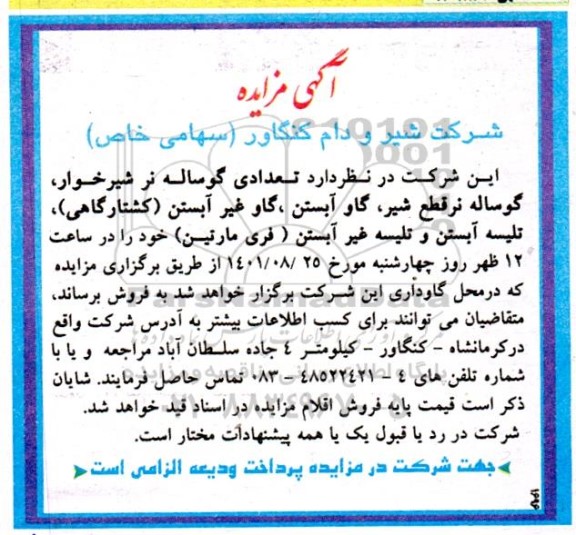 آگهی مزایده
شرکت شیر و دام کنگاور (سهامی خاص)
این شرکت در نظردارد تعدادی گوساله نر شیرخوار،
گوساله نرقطع شیر، گاو آبستن ،گاو غیر آبستن (کشتارگاهی)،
تلیسه آبستن و تلیسه غیر آبستن ( فری مارتین) خود را در ساعت
۱۲ ظهر روز چهارشنبه مورخ ۲۵ /۱۴۰۱/۰۸ از طریق برگزاری مزایده
که درمحل گاوداری این شرکت برگزار خواهد شد به فروش برساند،
متقاضیان می توانند برای کسب اطلاعات بیشتر به آدرس شرکت واقع
درکرمانشاه - کنگاور - کیلومتر ٤ جاده سلطان آباد مراجعه و یا با
شماره تلفن های ٤ - ٤٨٥٢٢٤٢١ - ٠٨٣ تماس حاصل فرمایند. شایان
ذکر است قیمت پایه فروش اقلام مزایده در اسناد قید خواهد شد.
شرکت در رد یا قبول یک یا همه پیشنهادات مختار است.
جهت شرکت در مزایده پرداخت ودیعه الزامی است